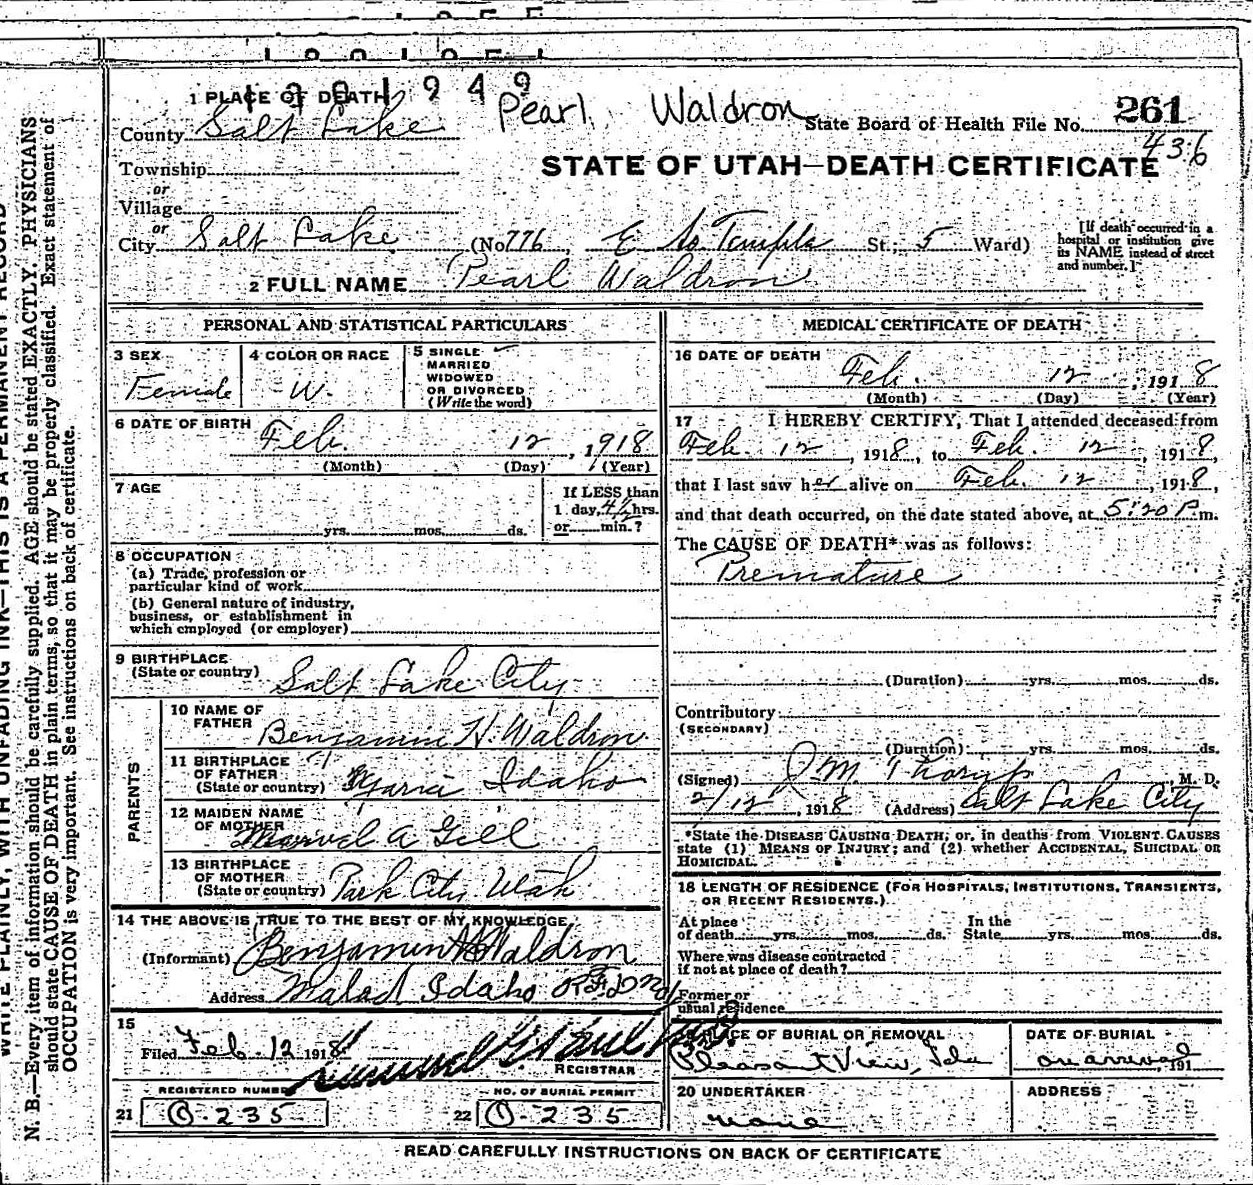 1901949
Pearl Waldron
1 PLACE OF DEATH
County Salt Lake
State Board of Health File No. 261
436
Township
or
Village
or
STATE OF UTAH—DEATH CERTIFICATE
City Salt Lake (No 776 E So. Temple St; 5 Ward)
[If death occurred in a
hospital or institution give
its NAME instead of street
and number.]
2 FULL NAME Pearl Waldron
PERSONAL AND STATISTICAL PARTICULARS
3 SEX
Female
4 COLOR OR RACE
W.
5 SINGLE
MARRIED
WIDOWED
OR DIVORCED
(Write the word)
6 DATE OF BIRTH
Feb. 12, 1918
(Month) (Day) (Year)
7 AGE
yrs. mos. ds.
If LESS than
1 day, 4½ hrs.
or min.?
8 OCCUPATION
(a) Trade, profession or
particular kind of work
(b) General nature of industry,
business, or establishment in
which employed (or employer)
9 BIRTHPLACE
(State or country) Salt Lake City
PARENTS
10 NAME OF
FATHER Benjamin H. Waldron
11 BIRTHPLACE
OF FATHER
(State or country) Idaho
12 MAIDEN NAME
OF MOTHER A Gill
13 BIRTHPLACE
OF MOTHER
(State or country) Park City, Utah
14 THE ABOVE IS TRUE TO THE BEST OF MY KNOWLEDGE
(Informant) Benjamin H Waldron
Address Malad Idaho R.F.D no1
15
Filed Feb. 12 1918
REGISTRAR
REGISTERED NUMBER
21 O-235
NO. OF BURIAL PERMIT
22 O-235
MEDICAL CERTIFICATE OF DEATH
16 DATE OF DEATH
Feb. 12, 1918
(Month) (Day) (Year)
17 I HEREBY CERTIFY, That I attended deceased from
Feb. 12, 1918, to Feb. 12, 1918,
that I last saw her alive on Feb. 12, 1918,
and that death occurred, on the date stated above, at 5:20 P m.
The CAUSE OF DEATH* was as follows:
Premature
(Duration) yrs. mos. ds.
Contributory
(SECONDARY)
(Duration) yrs. mos. ds.
(Signed) J. M. Thorup, M. D.
2/12, 1918 (Address) Salt Lake City
*State the DISEASE CAUSING DEATH; or, in deaths from VIOLENT CAUSES
state (1) MEANS OF INJURY; and (2) whether ACCIDENTAL, SUICIDAL OR
HOMICIDAL.
18 LENGTH OF RESIDENCE (FOR HOSPITALS, INSTITUTIONS, TRANSIENTS,
OR RECENT RESIDENTS.)
At place
of death yrs. mos. ds.
In the
State yrs. mos. ds.
Where was disease contracted
if not at place of death?
Former or
usual residence
PLACE OF BURIAL OR REMOVAL
Pleasant View, Ida
DATE OF BURIAL
on arrival, 191
20 UNDERTAKER
none
ADDRESS
READ CAREFULLY INSTRUCTIONS ON BACK OF CERTIFICATE
WRITE PLAINLY, WITH UNFADING INK—THIS IS A PERMANENT RECORD
N. B.—Every item of information should be carefully supplied. AGE should be stated EXACTLY. PHYSICIANS
should state CAUSE OF DEATH in plain terms, so that it may be properly classified. Exact statement of
OCCUPATION is very important. See instructions on back of certificate.